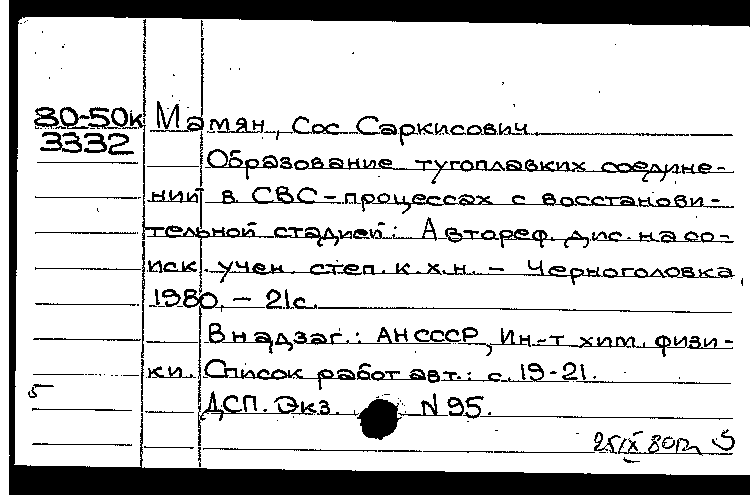 80-50к
3332
Мамян, Сос Саркисович.
Образование тугоплавких соедине-
ний в СВС-процессах с восстанови-
тельной стадией: Автореф. дис. на со-
иск. учен. степ. к.х.н. - Черноголовка,
1980. - 21с.
В надзаг.: АН СССР, Ин-т хим. физи-
ки. Список работ авт.: с. 19-21.
ДСП. Экз. N 95.
5